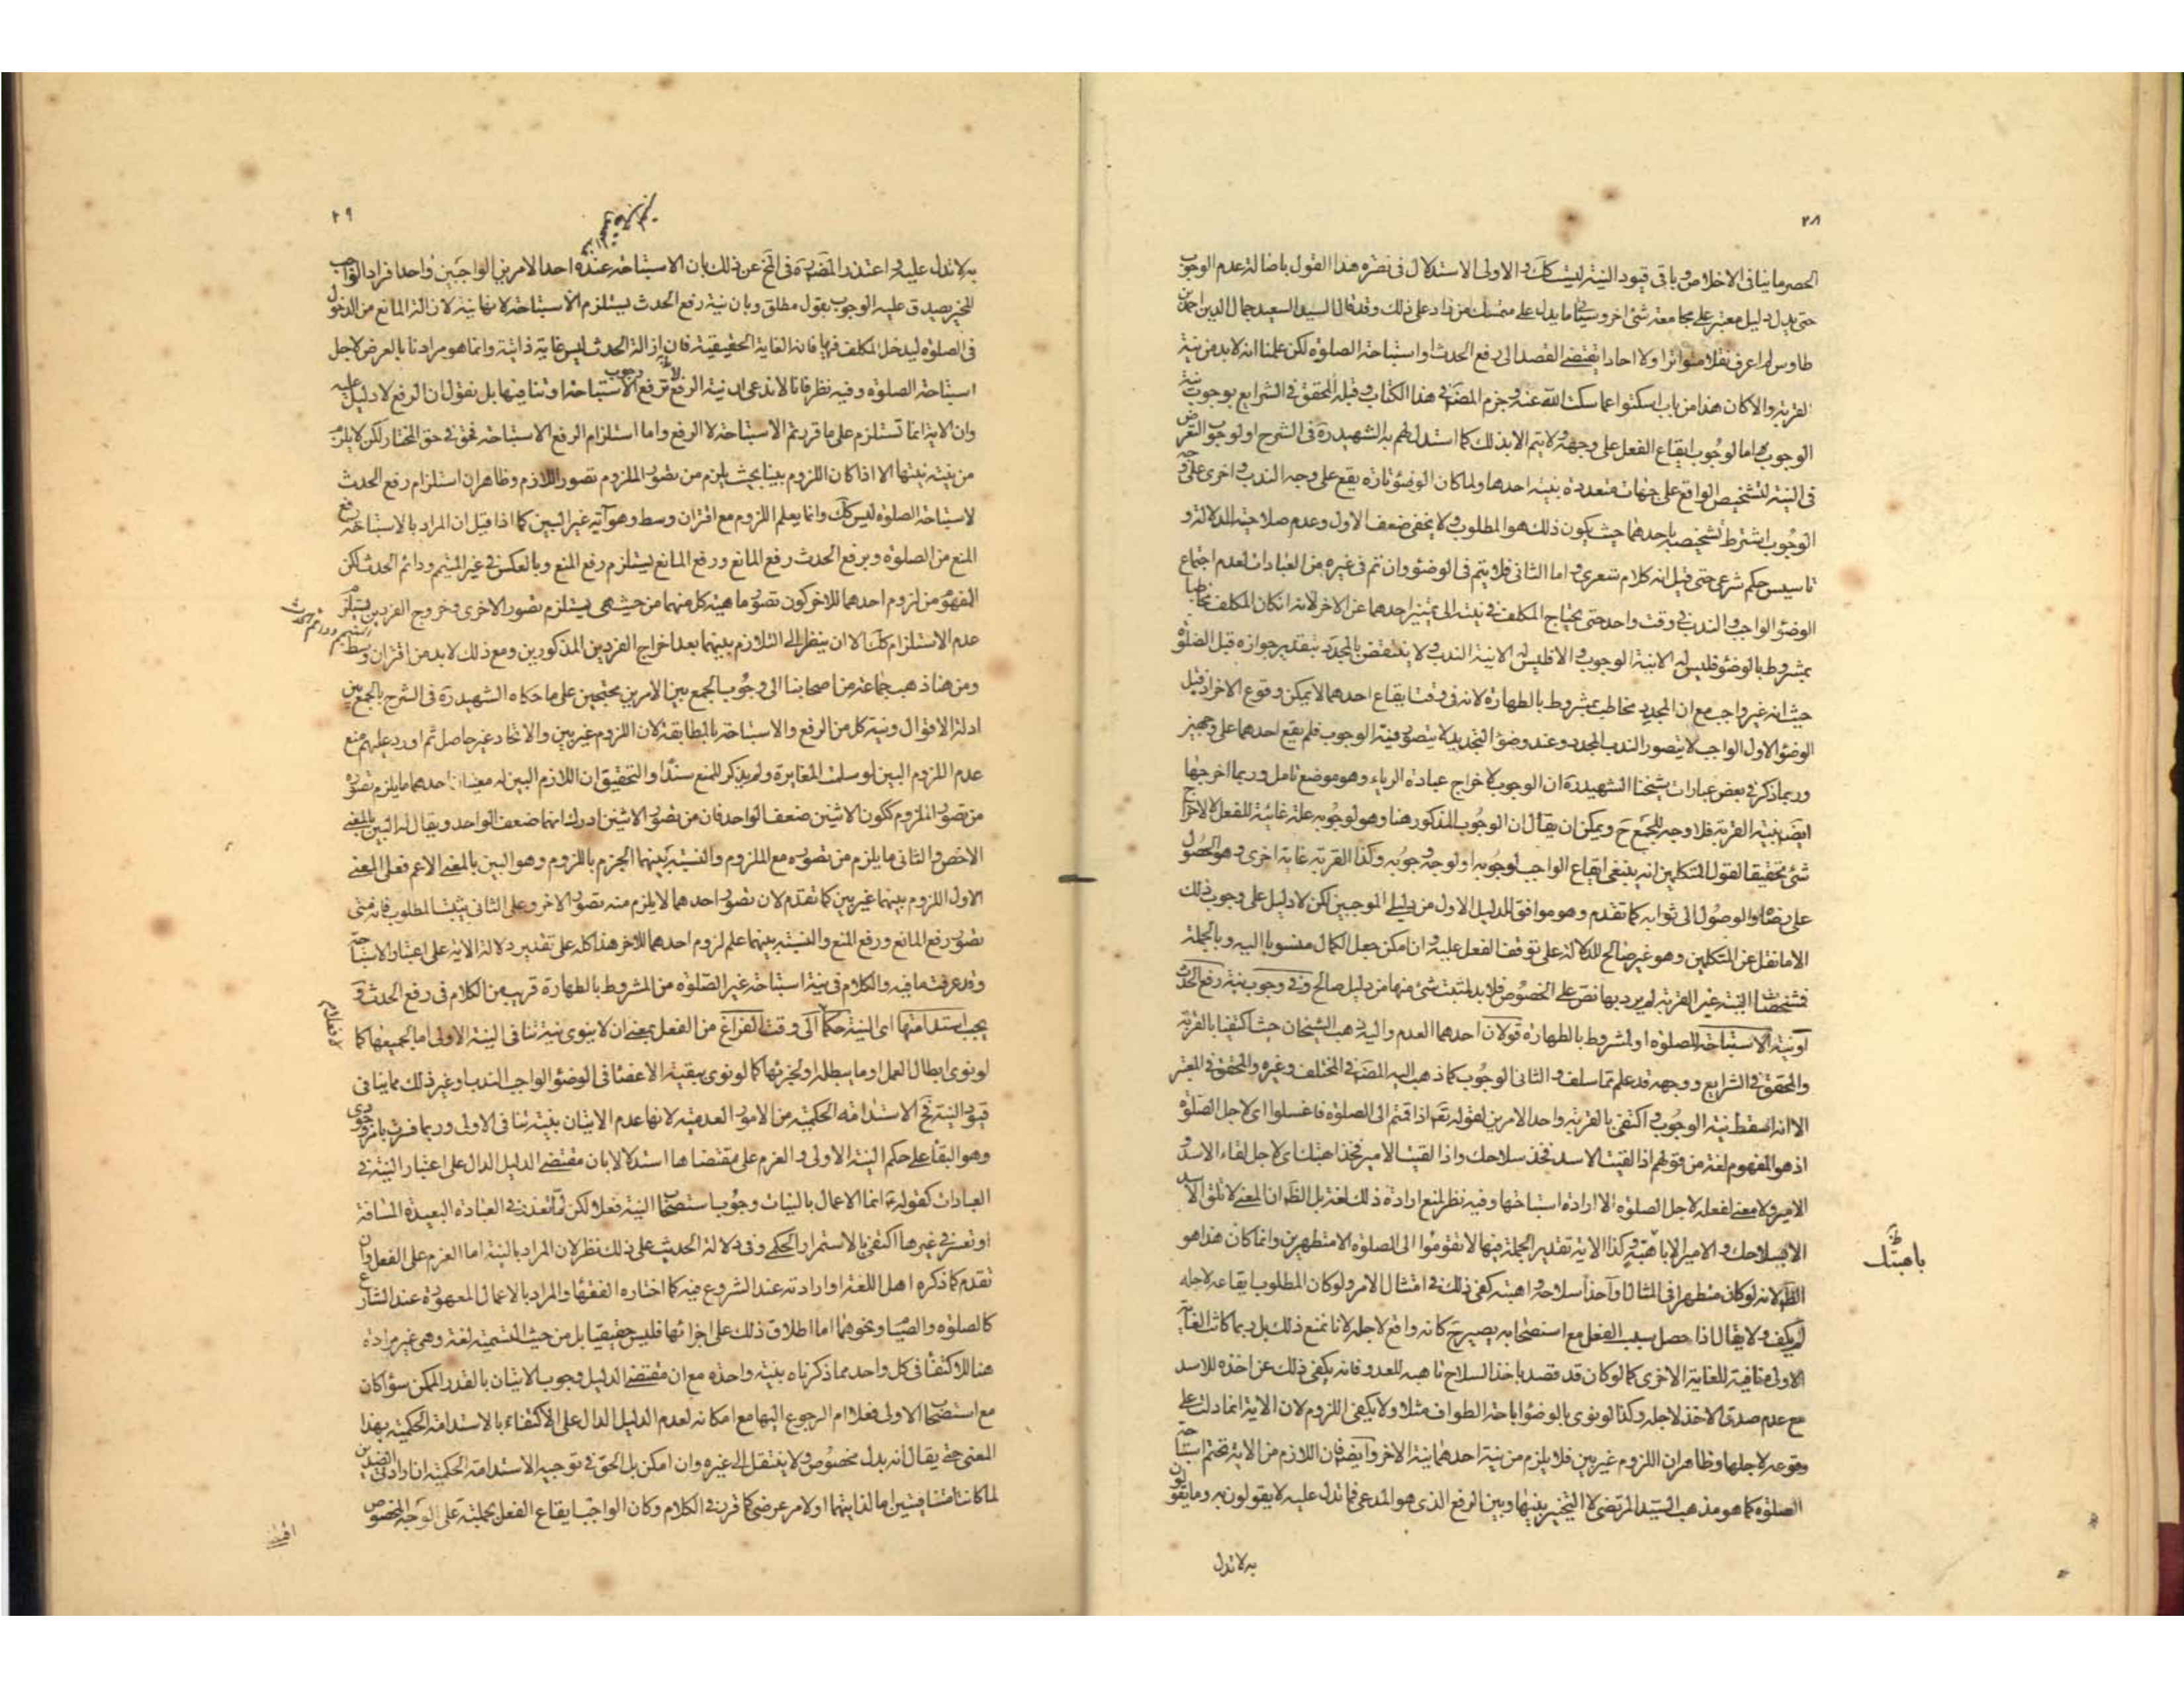 ٢٨
الحصر ما ينافى الاخلاص و باقى قيود النية ليست كك و الاولى الاستدلال فى نصرة هذا القول باصالة عدم الوجوب
حتى يدل دليل معتبر على مجامعة شئ اخر وسيأتى ما يدل على متمسك من زاد على ذلك وقد قال السيد السعيد جمال الدين احمد بن
طاوس لم اعرف نقلا متواترا ولا احادا يقتضى القصد الى رفع الحدث او استباحة الصلوة لكن علمنا انه لابد من نية
القربة والا كان هذا من باب اسكتوا عما سكت الله عنه و جزم المصنف فى هذا الكتاب و قبله المحقق فى الشرايع بوجوب نية
الوجوب اما لوجوب ايقاع الفعل على وجهه ولا يتم الا بذلك كما استدل لهم به الشهيد ره فى الشرح او لوجوب التعرض
فى النية لتشخيص الواقع على جهات متعددة بنية احدها ولما كان الوضوء تارة يقع على وجه الندب و اخرى على وجه
الوجوب اشترط تشخيصه باحدهما حيث يكون ذلك هو المطلوب ولا يخفى ضعف الاول وعدم صلاحيته للدلالة و
تاسيس حكم شرعى حتى قيل انه كلام شعرى و اما الثانى فلا يتم فى الوضوء وان تم فى غيره من العبادات لعدم اجتماع
الوضوء الواجب والندب فى وقت واحد حتى يحتاج المكلف فى نيته الى تمييز احدهما عن الاخر لانه ان كان المكلف مخاطبا
بمشروط بالوضوء فليس له الا نية الوجوب و الا فليس له الا نية الندب ولا ينتقض بالمجدد بتقدير جوازه قبل الصلوة
حيث انه غير واجب مع ان المجدد مخاطب بمشروط بالطهارة لانه فى وقت ايقاع احدهما لا يمكن وقوع الاخر اذ قبل
الوضوء الاول الواجب لا يتصور الندب المجدد وعند وضوء التجديد لا يتصور فيه الوجوب فلم يقع احدهما على وجهين
وربما ذكر فى بعض عبارات شيخنا الشهيد ره ان الوجوب لاخراج عبادة الرياء وهو موضع تامل وربما اخرجها
ايضا بنية القربة فلا وجه للجمع ح ويمكن ان يقال ان الوجوب المذكور هنا وهو لوجوبه علة غائية للفعل لا لاخراج
شئ تحقيقا لقول المتكلمين انه ينبغى ايقاع الواجب لوجوبه او لوجه وجوبه وكذا القربة غاية اخرى وهو الحصول
على رضاه او الوصول الى ثوابه كما تقدم وهو موافق للدليل الاول من دليلى الموجبين لكن لا دليل على وجوب ذلك
الا ما نقل عن المتكلمين وهو غير صالح للدلالة على توقف الفعل عليه و ان امكن جعل الكمال منسوبا اليه وبالجملة
فمشخصات النية غير القربة لم يرد بها نص على الخصوص فلابد لمثبت شئ منها من دليل صالح و فى وجوب نية رفع الحدث
او نية الاستباحة للصلوة او لمشروط بالطهارة قولان احدهما العدم واليه ذهب الشيخان حيث اكتفيا بالقربة
والمحقق فى الشرايع و وجهه قد علم مما سلف و الثانى الوجوب كما ذهب اليه المصنف فى المختلف وغيره والمحقق فى المعتبر
الا انه اسقط نية الوجوب و اكتفى بالقربة واحد الامرين لقوله تعالى اذا قمتم الى الصلوة فاغسلوا اى لاجل الصلوة
اذ هو المفهوم لغة من قولهم اذا لقيت الاسد فخذ سلاحك واذا لقيت الامير فخذ اهبتك اى لاجل لقاء الاسد و
الامير ولا معنى لفعله لاجل الصلوة الا ارادة استباحتها وفيه نظر لمنع ارادة ذلك لغة بل الظ ان المعنى لا تلق الاسد
الا بسلاحك و الامير الا باهبته و كذا الاية تقدير الجملة فيها لا تقوموا الى الصلوة الا متطهرين وانما كان هذا هو
باهبتك ظ
الظ لانه لو كان متطهرا فى المثال او آخذا سلاحه و اهبته كفى ذلك فى امتثال الامر ولو كان المطلوب ايقاعه لاجله
لم يكف ولا يقال اذا حصل سبب الفعل مع استصحابه يصير ح كانه واقع لاجله لانا نمنع ذلك بل ربما كانت الغاية
الاولى منافية للغاية الاخرى كما لو كان قد قصد باخذ السلاح تاهبه للعدو فانه يكفى ذلك عن اخذه للاسد
مع عدم صدق الاخذ لاجله وكذا لو نوى بالوضوء اباحة الطواف مثلا ولا يكفى اللزوم لان الاية انما دلت على
وقوعه لاجلها وظاهر ان اللزوم غير بين فلا يلزم من نية احدهما نية الاخر و ايضا فان اللازم من الاية تحتم استباحة
الصلوة كما هو مذهب السيد المرتضى لا التخيير بينها وبين الرفع الذى هو المدعى فما تدل عليه لا يقولون به وما يقولون
به لا تدل
٢٩
به لا تدل عليه و اعتذر المصنف ره فى المخ عن ذلك بان الاستباحة عنده احد الامرين الواجبين و احد افراد الواجب
المخير يصدق عليه الوجوب بقول مطلق وبان نية رفع الحدث يستلزم الاستباحة لانها نية لازالة المانع من الدخول
فى الصلوة ليدخل المكلف فيها فانه الغاية الحقيقية فان ازالة الحدث ليس غاية ذاتية وانما هو مراد بالعرض لاجل
استباحة الصلوة وفيه نظر فانا لا ندعى ان نية الرفع ترفع وجوب الاستباحة او تنافيها بل نقول ان الرفع لا دليل عليه
وان الاية انما تستلزم على ما قررتم الاستباحة لا الرفع واما استلزام الرفع الاستباحة فحق فى حق المختار لكن لا يلزم
من نيته نيتها الا اذا كان اللزوم بينا بحيث يلزم من تصور الملزوم تصور اللازم وظاهر ان استلزام رفع الحدث
لاستباحة الصلوة ليس كك وانما يعلم اللزوم مع اقتران وسط وهو آية غير البين كما اذا قيل ان المراد بالاستباحة رفع
المنع من الصلوة وبرفع الحدث رفع المانع ورفع المانع يستلزم رفع المنع وبالعكس فى غير المتيمم ودائم الحدث لكن
المفهوم من لزوم احدهما للاخر كون تصور ماهية كل منهما من حيث هى يستلزم تصور الاخرى وخروج الفردين يستلزم
المتيمم ودائم الحدث
عدم الاستلزام كك الا ان ينظر الى التلازم بينهما بعد اخراج الفردين المذكورين ومع ذلك لابد من اقتران وسط
ومن هنا ذهب جماعة من اصحابنا الى وجوب الجمع بين الامرين محتجين على ما حكاه الشهيد ره فى الشرح بالجمع بين
ادلة الاقوال ونية كل من الرفع والاستباحة بالمطابقة لان اللزوم غير بين والاتحاد غير حاصل ثم اورد عليهم منع
عدم اللزوم البين لو سلمت المغايرة ولم يذكر للمنع سندا والتحقيق ان اللازم البين له معنيان احدهما ما يلزم تصوره
من تصور الملزوم ككون الاثنين ضعف الواحد فان من تصور الاثنين ادرك انهما ضعف الواحد ويقال له البين بالمعنى
الاخص والثانى ما يلزم من تصوره مع الملزوم والنسبة بينهما الجزم باللزوم وهو البين بالمعنى الاعم فعلى المعنى
الاول اللزوم بينهما غير بين كما تقدم لان تصور احدهما لا يلزم منه تصور الاخر وعلى الثانى يثبت المطلوب فانه متى
تصور رفع المانع ورفع المنع والنسبة بينهما علم لزوم احدهما للاخر هذا كله على تقدير دلالة الاية على اعتبار الاستباحة
وقد عرفت ما فيه والكلام فى نية استباحة غير الصلوة من المشروط بالطهارة قريب من الكلام فى رفع الحدث و
يجب استدامتها اى النية حكما الى وقت الفراغ من الفعل بمعنى ان لا ينوى نية تنافى النية الاولى اما لجميعها كما
لو نوى ابطال العمل او ما يبطله او لجزئها كما لو نوى ببقية الاعضاء فى الوضوء الواجب الندب او غير ذلك مما ينافى
قيود النية فح الاستدامة الحكمية من الامور العدمية لانها عدم الاتيان بنية تنافى الاولى وربما فسرت بامر وجودى
وهو البقاء على حكم النية الاولى و العزم على مقتضاها استدلالا بان مقتضى الدليل الدال على اعتبار النية فى
العبادات كقوله ع انما الاعمال بالنيات وجوب استصحاب النية فعلا لكن لما تعذر فى العبادة البعيدة المسافة
او تعسر فى غيرها اكتفى بالاستمرار الحكمى وفى دلالة الحديث على ذلك نظر لان المراد بالنية اما العزم على الفعل وان
تقدم كما ذكره اهل اللغة او ارادته عند الشروع فيه كما اختاره الفقهاء والمراد بالاعمال المعهودة عند الشارع
كالصلوة والصيام ونحوهما اما اطلاق ذلك على اجزائها فليس حقيقيا بل من حيث التسمية لغة وهى غير مرادة
هنا للاكتفاء فى كل واحد مما ذكرناه بنية واحدة مع ان مقتضى الدليل وجوب الاتيان بالقدر الممكن سواء كان
مع استصحاب الاولى فعلا ام الرجوع اليها مع امكانه لعدم الدليل الدال على الاكتفاء بالاستدامة الحكمية بهذا
المعنى حتى يقال انه بدل مخصوص ولا ينتقل الى غيره وان امكن بل الحق فى توجيه الاستدامة الحكمية ان ارادتى الضدين
لما كانتا متنافيتين اما لذاتيهما او لامر عرضى كما قرر فى الكلام وكان الواجب ايقاع الفعل بجملته على الوجه المخصوص